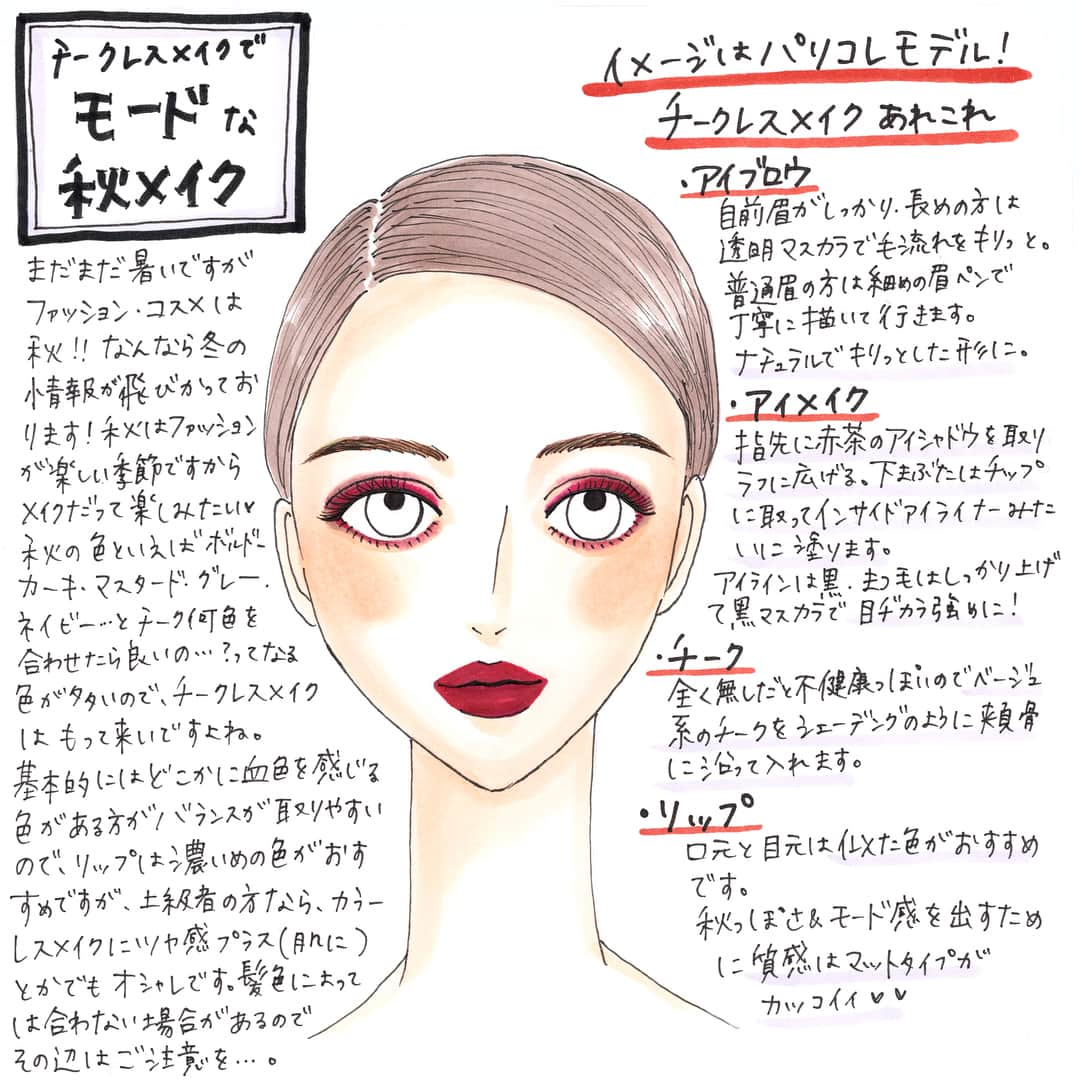 チークレスメイクで
モードな
秋メイク
まだまだ暑いですが
ファッション・コスメは
秋!! なんなら冬の
情報が飛びかってお
ります!秋はファッション
が楽しい季節ですから
メイクだって楽しみたい♥
秋の色といえばボルドー
カーキ・マスタード・グレー・
ネイビー…とチーク何色を
合わせたら良いの…?ってなる
色が多いので、チークレスメイク
はもって来いですよね。
基本的にはどこかに血色を感じる
色がある方がバランスが取りやすい
ので、リップは濃いめの色がおす
すめですが、上級者の方なら、カラー
レスメイクにツヤ感プラス(肌に)
とかでもオシャレです。髪色によって
は合わない場合があるので
その辺はご注意を…。
イメージはパリコレモデル!
チークレスメイクあれこれ
・アイブロウ
自前眉がしっかり・長めの方は
透明マスカラで毛流れをキリっと。
普通眉の方は細めの眉ペンで
丁寧に描いて行きます。
ナチュラルでキリっとした形に。
・アイメイク
指先に赤茶のアイシャドウを取り
ラフに広げる。下まぶたはチップ
に取ってインサイドアイライナーみた
いに塗ります。
アイラインは黒・まつ毛はしっかり上げ
て、黒マスカラで目ヂカラ強めに!
・チーク
全く無しだと不健康っぽいのでベージュ
系のチークをシェーディングのように頬骨
に沿って入れます。
・リップ
口元と目元は似た色がおすすめ
です。
秋っぽさ&モード感を出すため
に質感はマットタイプが
カッコイイ♥♥